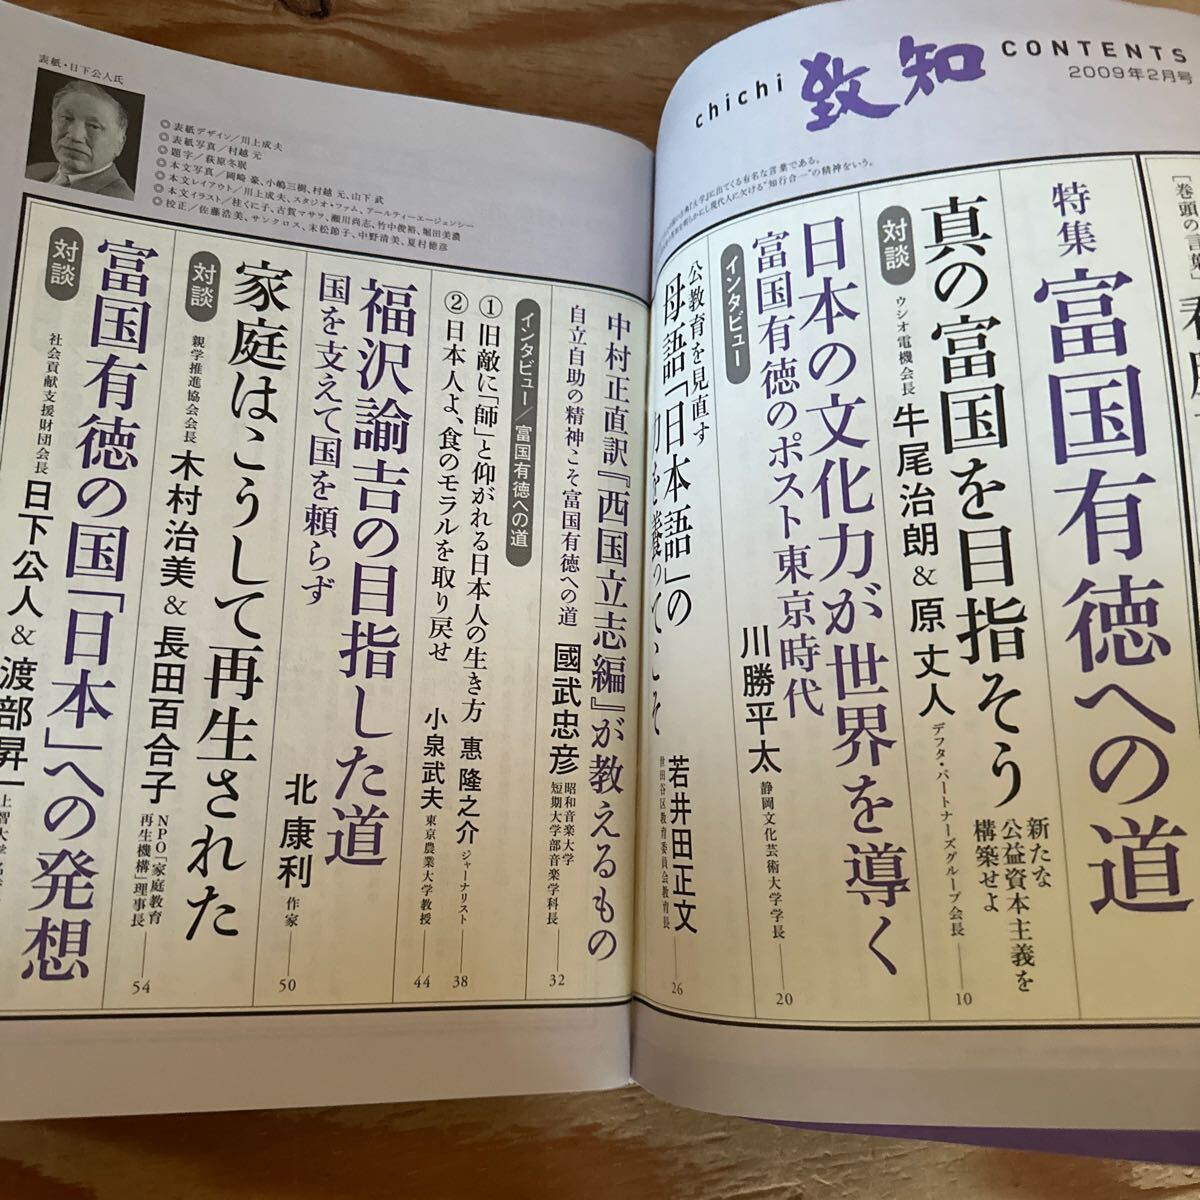 chichi 致知 CONTENTS
2009年2月号
に出てくる有名な言葉である。
現代人に欠ける“知行合一”の精神をいう。
［巻頭の言葉
特集 富国有徳への道
対談
真の富国を目指そう
新たな
公益資本主義を
構築せよ
ウシオ電機会長 牛尾治朗 & 原 丈人 デフタ・パートナーズグループ会長 10
日本の文化力が世界を導く
インタビュー
富国有徳のポスト東京時代
川勝平太 静岡文化芸術大学学長 20
公教育を見直す
母語「日本語」の
若井田正文 世田谷区教育委員会教育長 26
中村正直訳『西国立志編』が教えるもの
自立自助の精神こそ富国有徳への道 國武忠彦 昭和音楽大学
短期大学部音楽学科長 32
インタビュー／富国有徳への道
① 旧敵に「師」と仰がれる日本人の生き方 惠 隆之介 ジャーナリスト 38
② 日本人よ、食のモラルを取り戻せ 小泉武夫 東京農業大学教授 44
福沢諭吉の目指した道
国を支えて国を頼らず
北 康利 作家 50
家庭はこうして再生された
対談
親学推進協会会長 木村治美 & 長田百合子 NPO「家庭教育
再生機構」理事長 54
富国有徳の国「日本」への発想
対談
社会貢献支援財団会長 日下公人 & 渡部昇一
表紙・日下公人氏
◎表紙デザイン／川上成夫
◎表紙写真／村越 元
◎題字／荻原冬珉
◎本文写真／岡崎 豪、小嶋三樹、村越 元、山下 武
◎本文レイアウト／川上成夫、スタジオ・ファム、アールティーエージェンシー
◎本文イラスト／桂くに子、古賀マサヲ、瀬川尚志、竹中俊裕、堀田美濃
◎校正／佐藤浩美、サンクロス、末松節子、中野清美、夏村徳彦